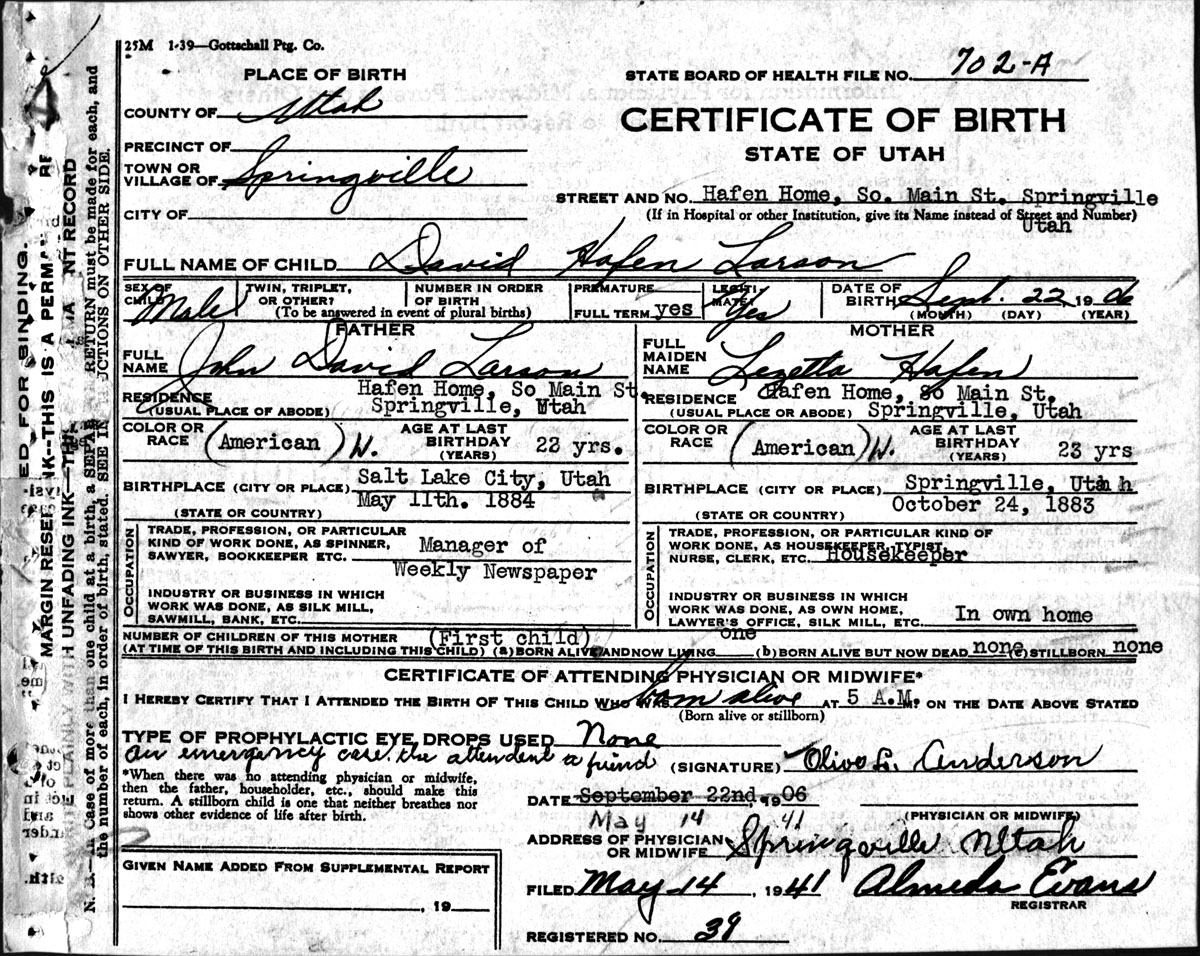 25M 1-39—Gottschall Ptg. Co.
PLACE OF BIRTH
STATE BOARD OF HEALTH FILE NO. 702-A
COUNTY OF Utah
CERTIFICATE OF BIRTH
STATE OF UTAH
PRECINCT OF
TOWN OR VILLAGE OF Springville
STREET AND NO. Hafen Home, So. Main St. Springville
(If in Hospital or other Institution, give its Name instead of Street and Number)
Utah
CITY OF
FULL NAME OF CHILD David Hafen Larson
SEX OF CHILD Male
TWIN, TRIPLET, OR OTHER?
NUMBER IN ORDER OF BIRTH
(To be answered in event of plural births)
PREMATURE
FULL TERM yes
LEGITIMATE? Yes
DATE OF BIRTH Sept. 22 1906
(MONTH) (DAY) (YEAR)
FATHER
FULL NAME John David Larson
RESIDENCE (USUAL PLACE OF ABODE) Hafen Home, So Main St. Springville, Utah
COLOR OR RACE (American) W.
AGE AT LAST BIRTHDAY (YEARS) 22 yrs.
BIRTHPLACE (CITY OR PLACE) Salt Lake City, Utah
(STATE OR COUNTRY) May 11th. 1884
OCCUPATION
TRADE, PROFESSION, OR PARTICULAR KIND OF WORK DONE, AS SPINNER, SAWYER, BOOKKEEPER ETC. Manager of
Weekly Newspaper
INDUSTRY OR BUSINESS IN WHICH WORK WAS DONE, AS SILK MILL, SAWMILL, BANK, ETC.
MOTHER
FULL MAIDEN NAME Lezetta Hafen
RESIDENCE (USUAL PLACE OF ABODE) Hafen Home, So Main St. Springville, Utah
COLOR OR RACE (American) W.
AGE AT LAST BIRTHDAY (YEARS) 23 yrs
BIRTHPLACE (CITY OR PLACE) Springville, Utah
(STATE OR COUNTRY) October 24, 1883
OCCUPATION
TRADE, PROFESSION, OR PARTICULAR KIND OF WORK DONE, AS HOUSEKEEPER, TYPIST, NURSE, CLERK, ETC. Housekeeper
INDUSTRY OR BUSINESS IN WHICH WORK WAS DONE, AS OWN HOME, LAWYER'S OFFICE, SILK MILL, ETC. In own home
NUMBER OF CHILDREN OF THIS MOTHER (First child)
(AT TIME OF THIS BIRTH AND INCLUDING THIS CHILD) (a) BORN ALIVE AND NOW LIVING one (b) BORN ALIVE BUT NOW DEAD none (c) STILLBORN none
CERTIFICATE OF ATTENDING PHYSICIAN OR MIDWIFE*
I HEREBY CERTIFY THAT I ATTENDED THE BIRTH OF THIS CHILD WHO WAS born alive AT 5 A.M. ON THE DATE ABOVE STATED
(Born alive or stillborn)
TYPE OF PROPHYLACTIC EYE DROPS USED None
an emergency case. the attendent a friend
(SIGNATURE) Olive L. Anderson
*When there was no attending physician or midwife, then the father, householder, etc., should make this return. A stillborn child is one that neither breathes nor shows other evidence of life after birth.
DATE September 22nd, 1906
May 14 41
(PHYSICIAN OR MIDWIFE)
ADDRESS OF PHYSICIAN OR MIDWIFE Springville Utah
GIVEN NAME ADDED FROM SUPPLEMENTAL REPORT
, 19
FILED May 14, 1941 Almeda Evans
REGISTRAR
REGISTERED NO. 39